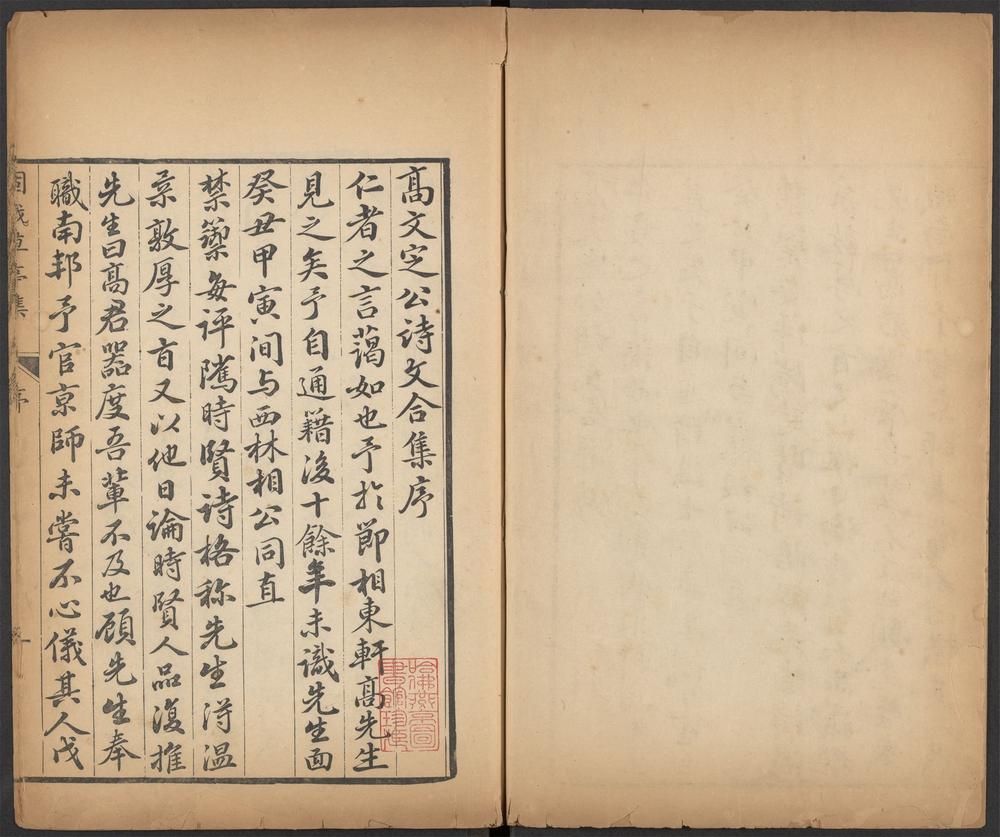 高文定公诗文合集序
仁者之言藹如也予於節相東軒高先生
見之矣予自通籍後十餘年未識先生面
癸丑甲寅间与西林相公同直
禁籞每评隲時賢诗格称先生淂温
柔敦厚之旨又以他日論時賢人品復推
先生曰高君器度吾輩不及也顾先生奉
職南邦予官京師未嘗不心儀其人戊
固哉草亭集
序
一
哈佛燕京圖
書館珍藏